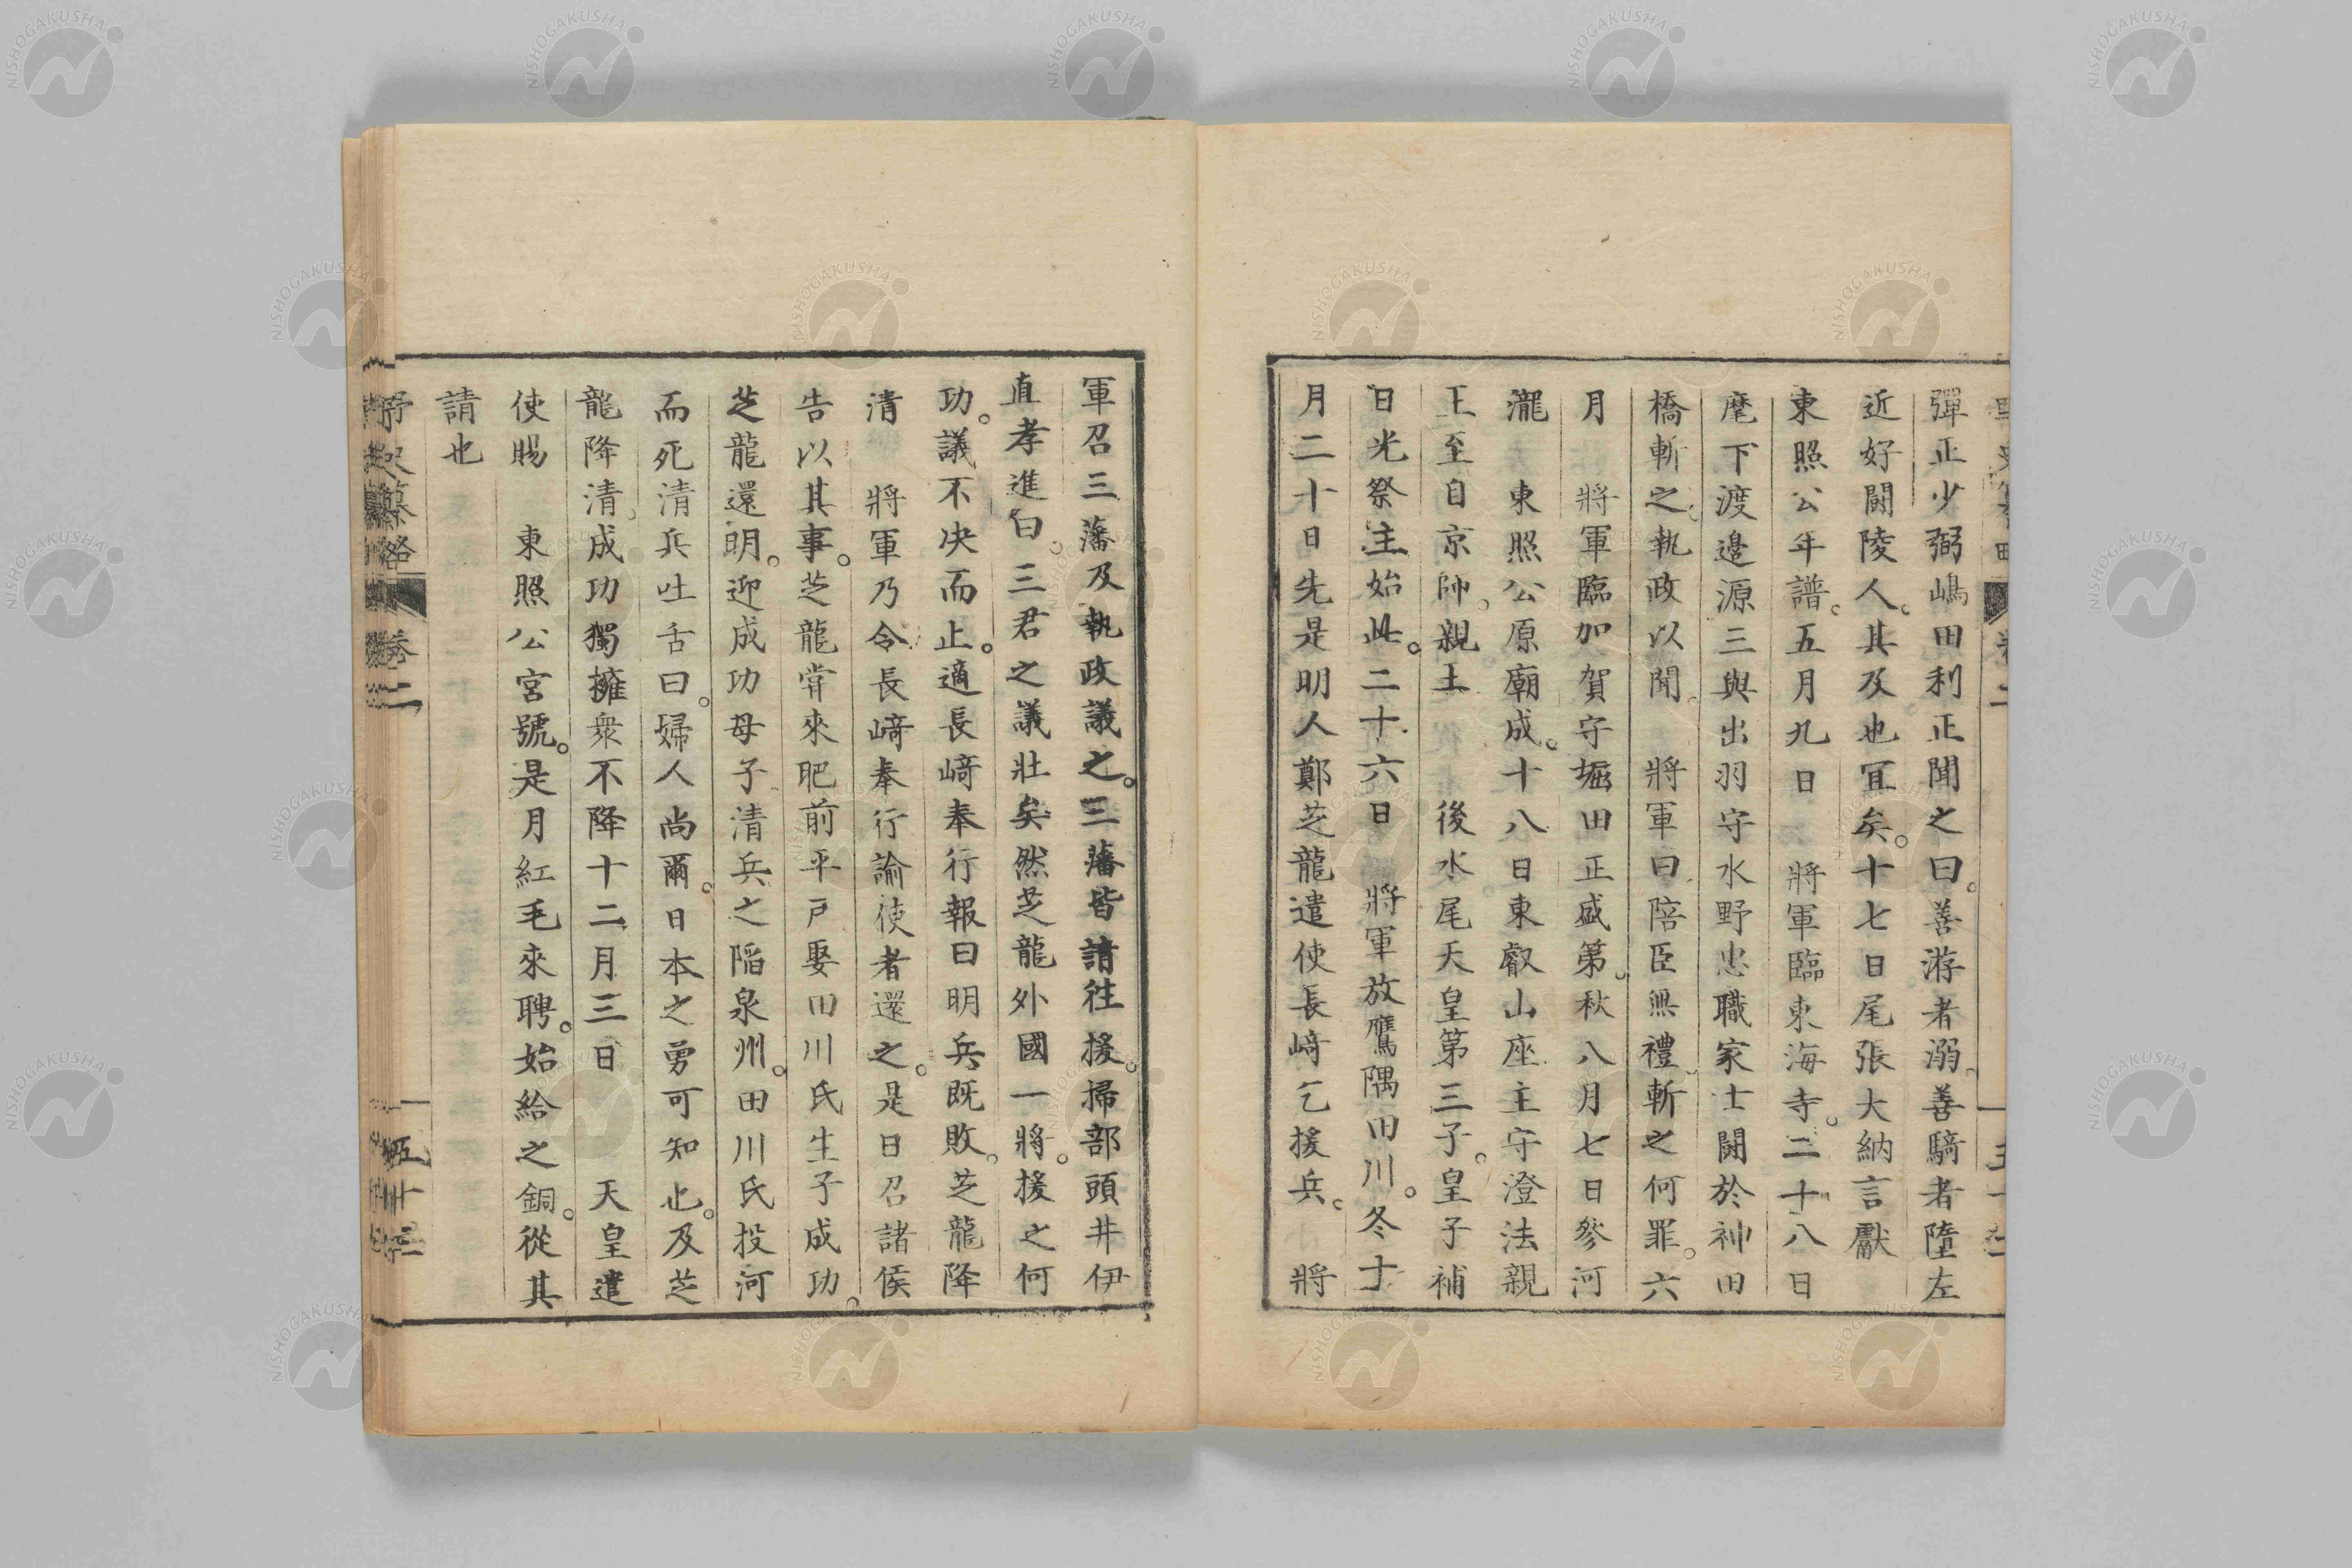 彈正少弼嶋田利正聞之曰。善游者溺。善騎者墮左
近好鬪陵人。其及也宜矣。十七日尾張大納言獻
東照公年譜。五月九日 將軍臨東海寺。二十八日
麾下渡邉源三與出羽守水野忠職家士鬪於神田
橋斬之。執政以聞。 將軍曰陪臣無禮斬之何罪。六
月 將軍臨加賀守堀田正盛第。秋八月七日參河
瀧 東照公原廟成。十八日東叡山座主守澄法親
王至自京師。親王 後水尾天皇第三子。皇子補
日光祭主始此。二十六日 將軍放鷹隅田川。冬十
月二十日先是明人鄭芝龍遣使長﨑乞援兵。 將
軍召三藩及執政議之。三藩皆請往援。掃部頭井伊
直孝進曰。三君之議壯矣然芝龍外國一將。援之何
功。議不决而止。適長﨑奉行報曰明兵既敗。芝龍降
清 將軍乃令長﨑奉行諭使者還之。是日召諸侯
告以其事。芝龍甞來肥前平戸娶田川氏生子成功。
芝龍還明。迎成功母子清兵之陷泉州。田川氏投河
而死清兵吐舌曰。婦人尚爾。日本之勇可知也。及芝
龍降清。成功獨擁衆不降十二月三日 天皇遣
使賜 東照公宮號。是月紅毛來聘。始給之銅。從其
請也
野史纂略 卷二 五十三
NISHOGAKUSHA